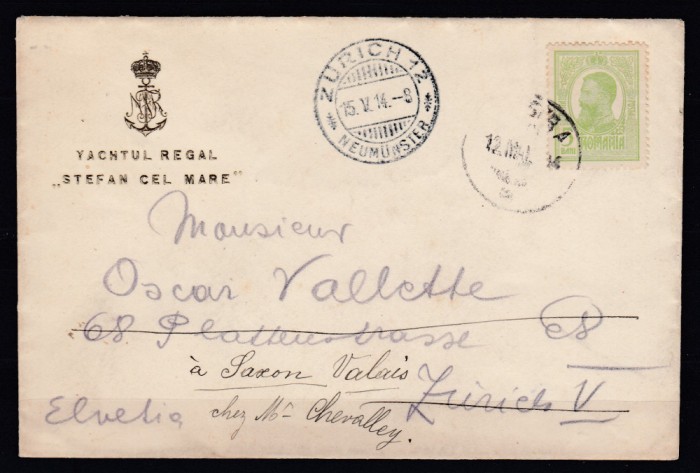 YACHTUL REGAL
„STEFAN CEL MARE"
ZÜRICH 12
15.V.14.-8
NEUMÜNSTER
12.MAI.
5 BANI
ROMANIA
Monsieur
Oscar Vallette
68 Plattenstrasse 68
à Saxon Valais
Zürich V
Elvetia
chez Mr Chevalley.